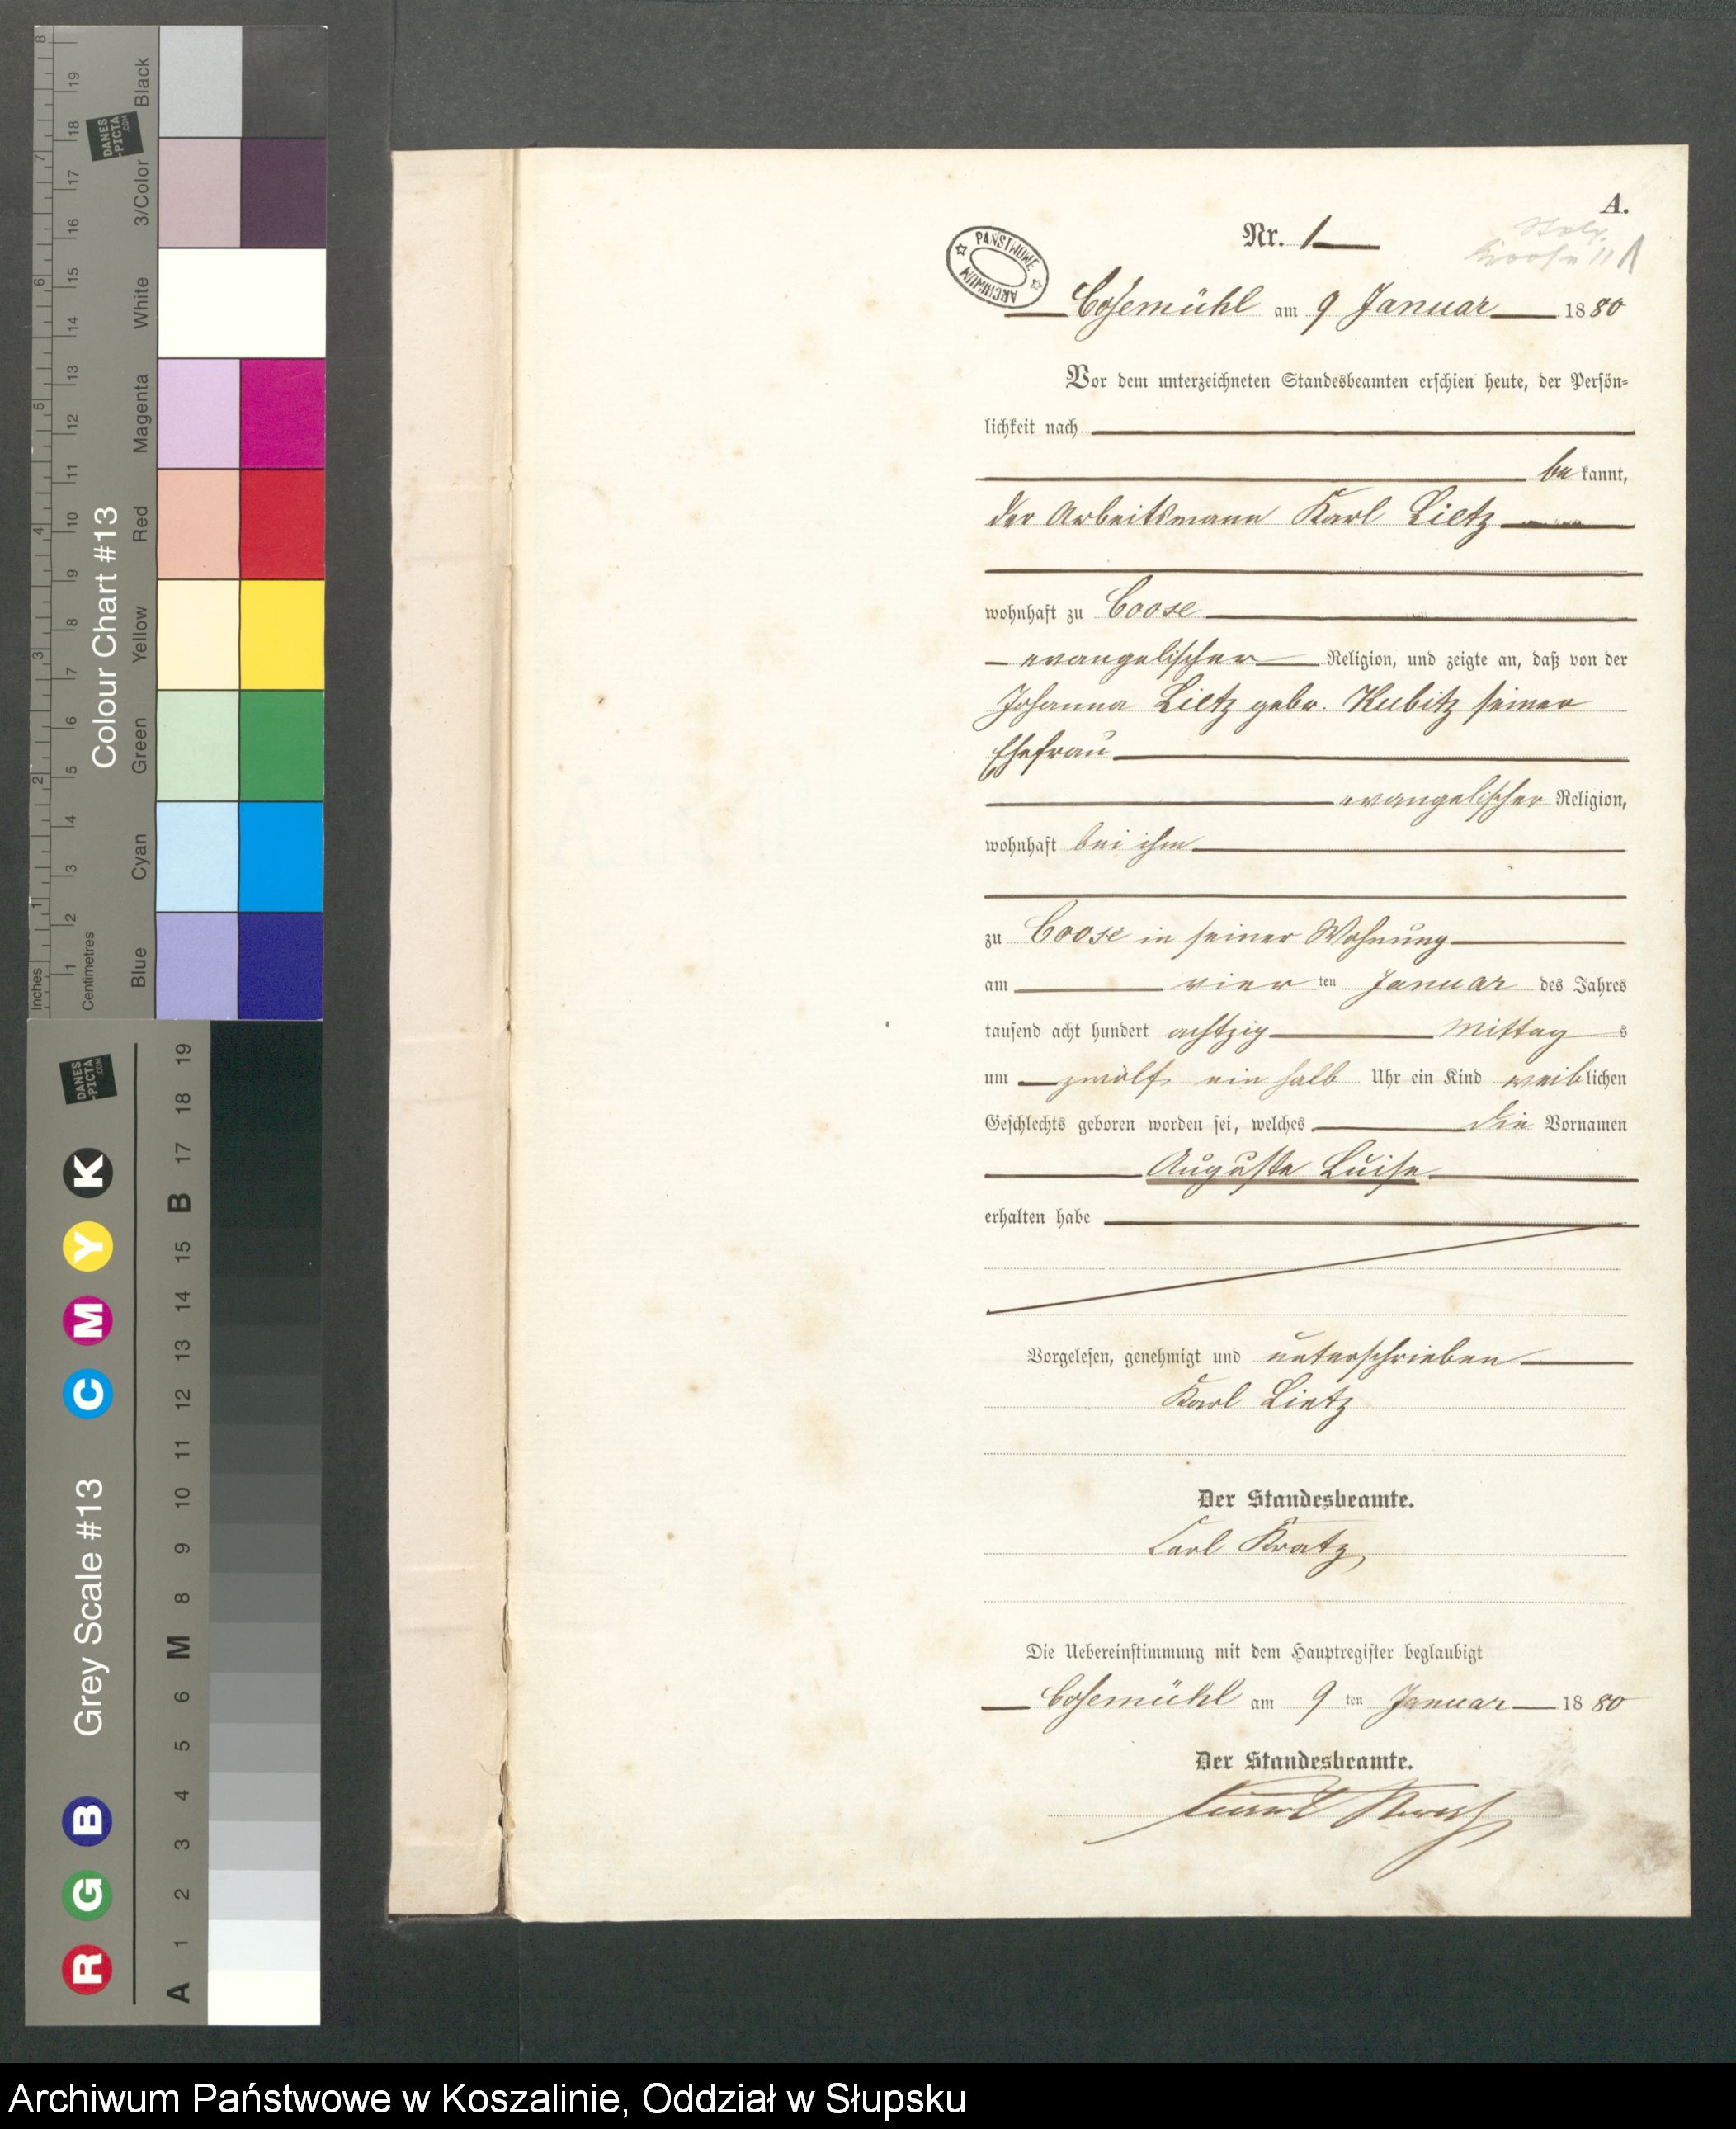 A.
Nr. 1
PAŃSTWOWE ARCHIWUM
Cosemühl am 9 Januar 1880
Vor dem unterzeichneten Standesbeamten erschien heute, der Persön-
lichkeit nach
be kannt,
der Arbeitsmann Karl Lietz
wohnhaft zu Coose
evangelischer Religion, und zeigte an, daß von der
Johanna Lietz gebr. Kubitz seiner
Ehefrau
evangelischer Religion,
wohnhaft bei ihm
zu Coose in seiner Wohnung
am vier ten Januar des Jahres
tausend acht hundert achtzig Mittag s
um zwölf ein halb Uhr ein Kind weiblichen
Geschlechts geboren worden sei, welches die Vornamen
Auguste Luise
erhalten habe
Vorgelesen, genehmigt und unterschrieben
Karl Lietz
Der Standesbeamte.
Carl Kratz
Die Uebereinstimmung mit dem Hauptregister beglaubigt
Cosemühl am 9 ten Januar 1880
Der Standesbeamte.
Inches
1 2 3 4 5 6 7 8
Centimetres
1 2 3 4 15 6 7 8 9 10 11 12 13 14 15 16 17 18 19
Colour Chart #13
Blue Cyan Green Yellow Red Magenta White 3/Color Black
DANES
-PICTA
.COM
Grey Scale #13
R G B C M Y K
A 1 2 3 4 5 6 M 8 9 10 11 12 13 14 15 B 17 18 19
DANES
-PICTA
.COM
Archiwum Państwowe w Koszalinie, Oddział w Słupsku